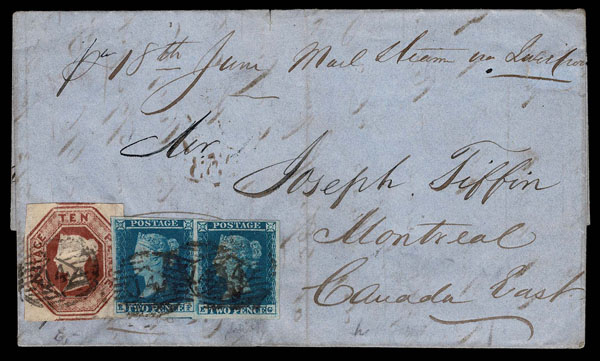 pr 18th June Mail Steam via Liverpool
Mr.
Joseph Tiffin
Montreal
Canada East
TEN
POSTAGE POSTAGE
E TWO PENCE F E TWO PENCE G